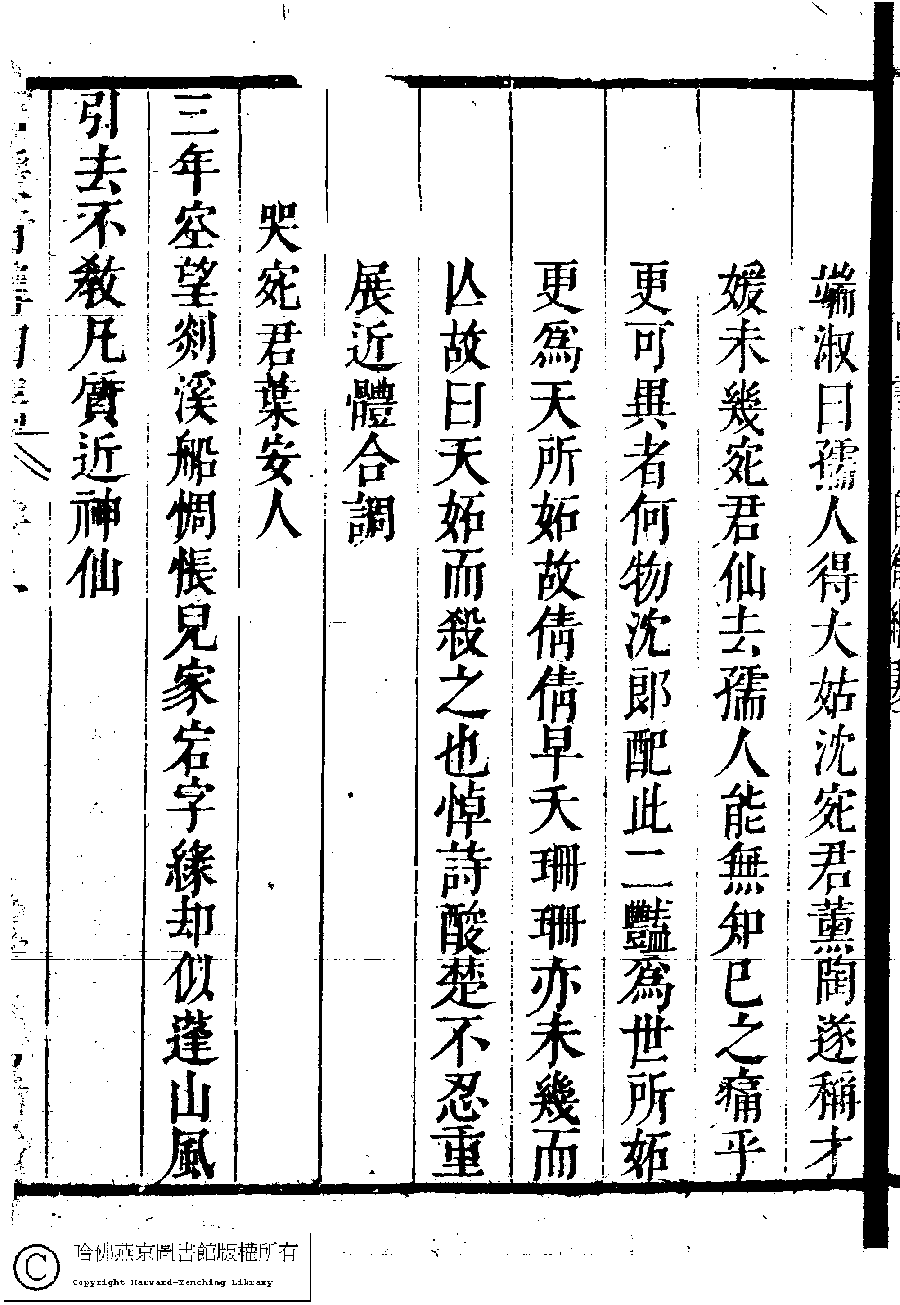 端淑曰孺人得大姑沈宛君薰陶遂稱才
媛未幾宛君仙去孺人能無知已之痛乎
更可異者何物沈郎配此二豔爲世所妬
更爲天所妬故倩倩早夭珊珊亦未幾而
亾故曰天妬而殺之也悼詩酸楚不忍重
展近體合調
哭宛君葉安人
三年空望剡溪船惆悵兒家宕字緣却似蓬山風
引去不敎凡質近神仙
哈佛燕京圖書館版權所有
Copyright Harvard-Yenching Library